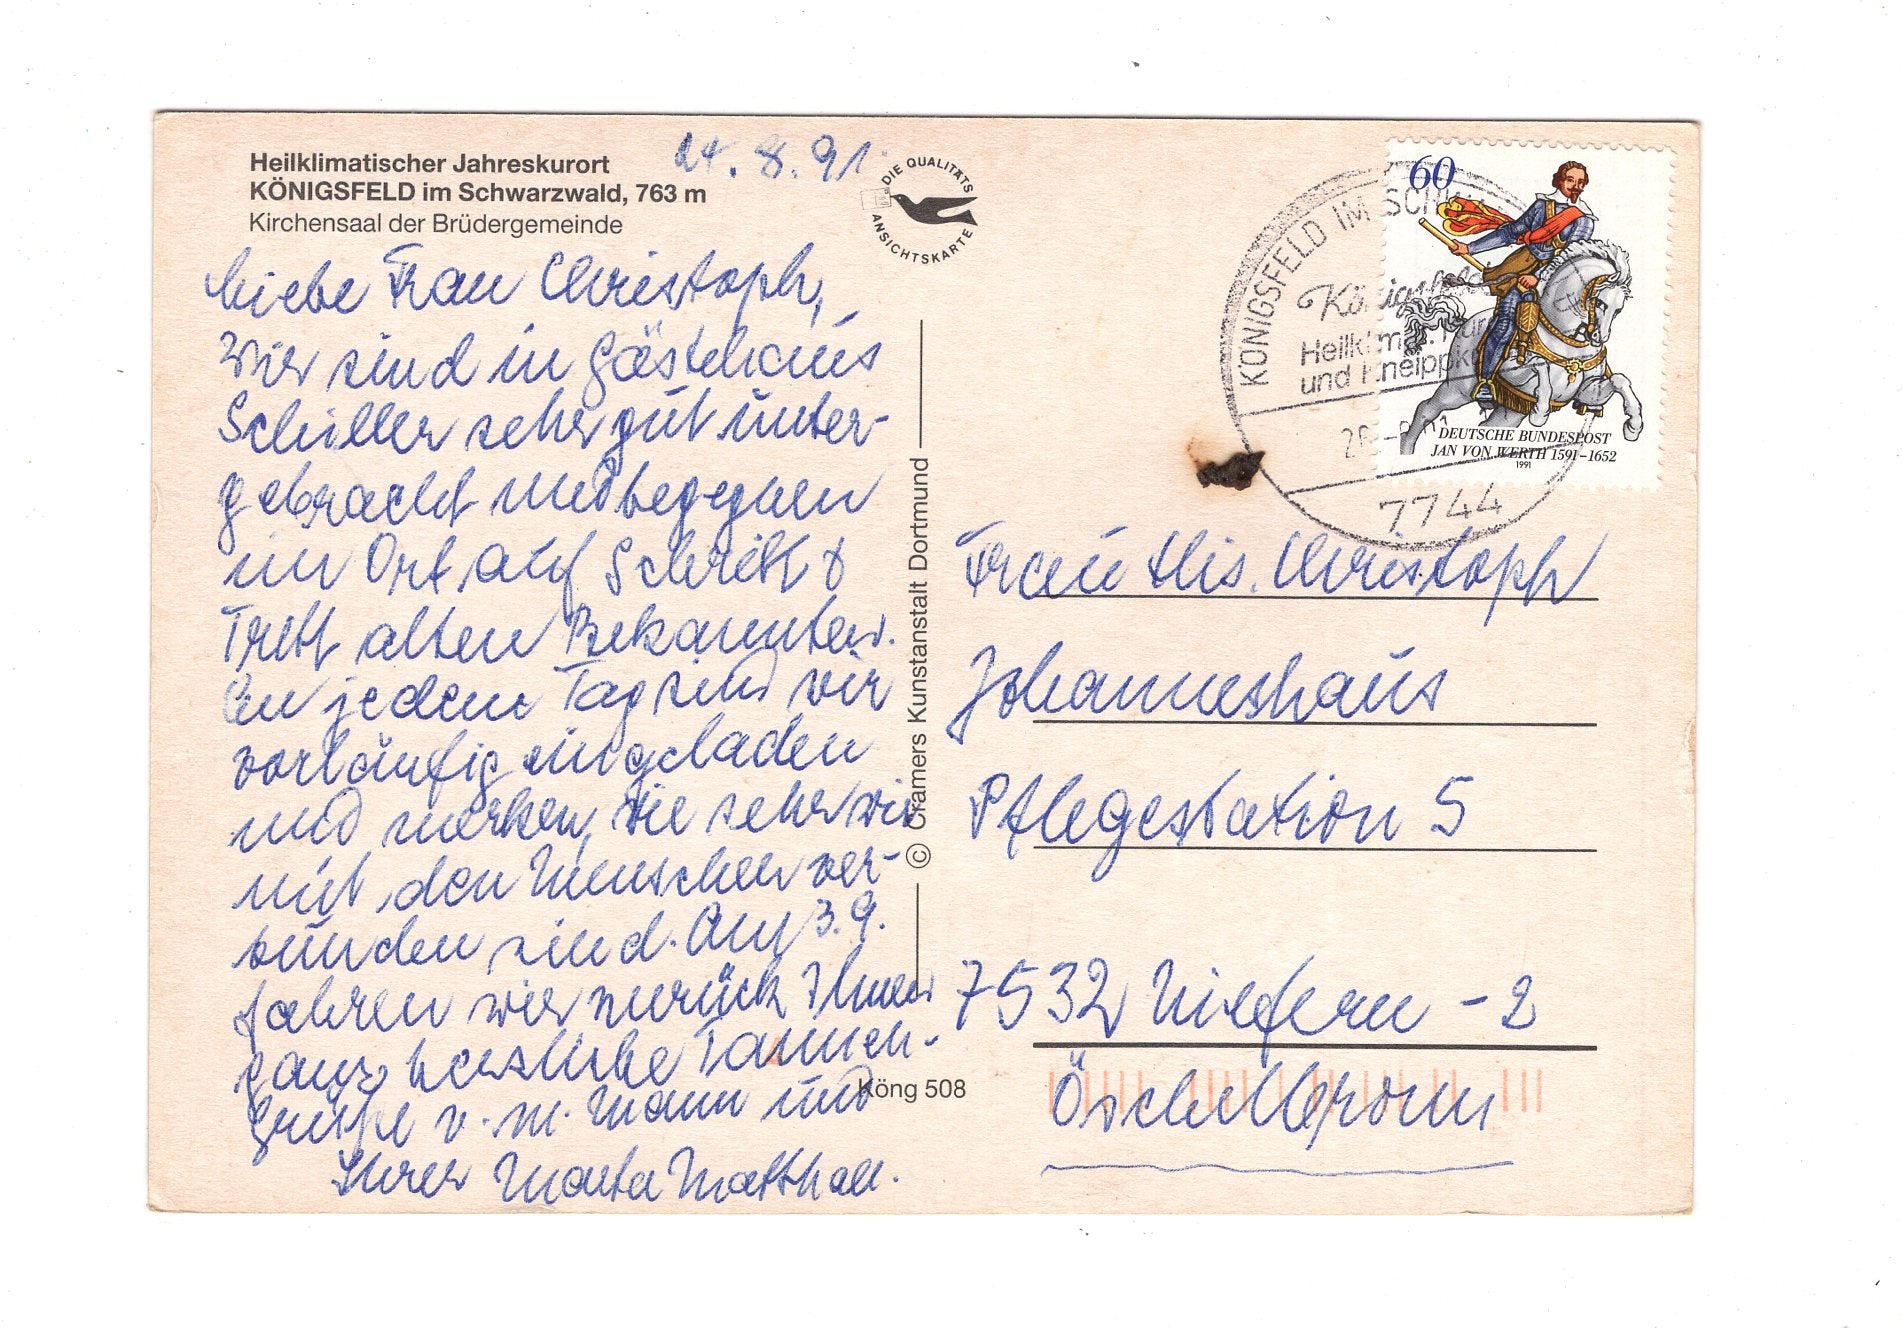 Heilklimatischer Jahreskurort
KÖNIGSFELD im Schwarzwald, 763 m
Kirchensaal der Brüdergemeinde
24.8.91
DIE QUALITÄTS
ANSICHTSKARTE
Liebe Frau Christoph,
Wir sind im Gästehaus
Schüller sehr gut unter-
gebracht und begegnen
im Ort auf Schritt &
Tritt alten Bekannten.
An jedem Tag sind wir
vorläufig eingeladen
und merken, wie sehr wir
mit den Menschen ver-
bunden sind. Am 3.9.
fahren wir zurück Ihnen
ganz herzliche Tannen-
grüße v. m. Mann und
Ihrer Marta Matthall.
© Cramers Kunstanstalt Dortmund
Köng 508
60
DEUTSCHE BUNDESPOST
JAN VON WERTH 1591-1652
1991
KÖNIGSFELD IM SCHW
Königsfeld
Heilklimat. Kur
und Kneippku
7744
Frau Christoph
Johanneshaus
Pflegestation 5
7532 Niefern - 2
Öschelbronn